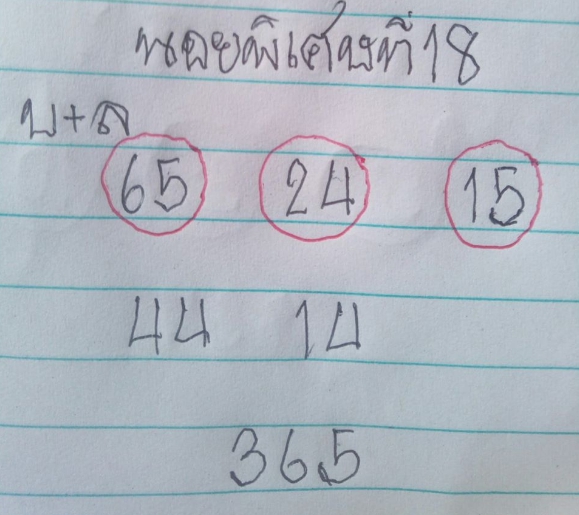 หฮอยพิเศษที่18
บ+ล
65 24 15
44 14
365